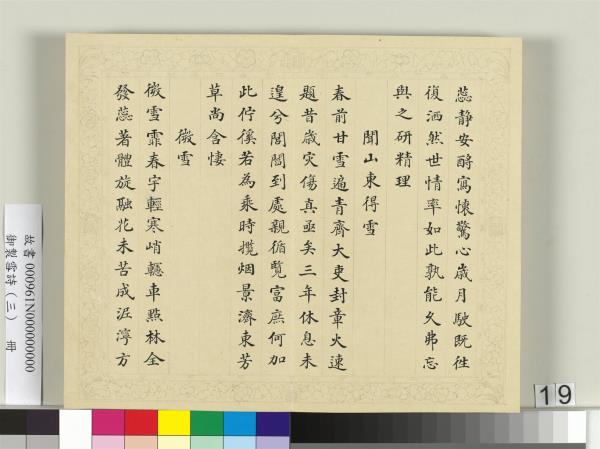 蕊靜安酹寫懷驚心歲月駛既徃
復洒然世情率如此孰能久弗忘
與之研精理
聞山東得雪
春前甘雪遍青齊大吏封章火速
題昔歲灾傷真亟矣三年休息未
遑兮閭閻到處親循覽富庶何加
此佇徯若為乘時攬烟景濟東芳
草尚含悽
微雪
微雪霏春宇輕寒峭轣車㸃林全
發蕊著體旋融花未苦成泥濘方
故書 000961N000000000
御製雪詩（三） 冊
19